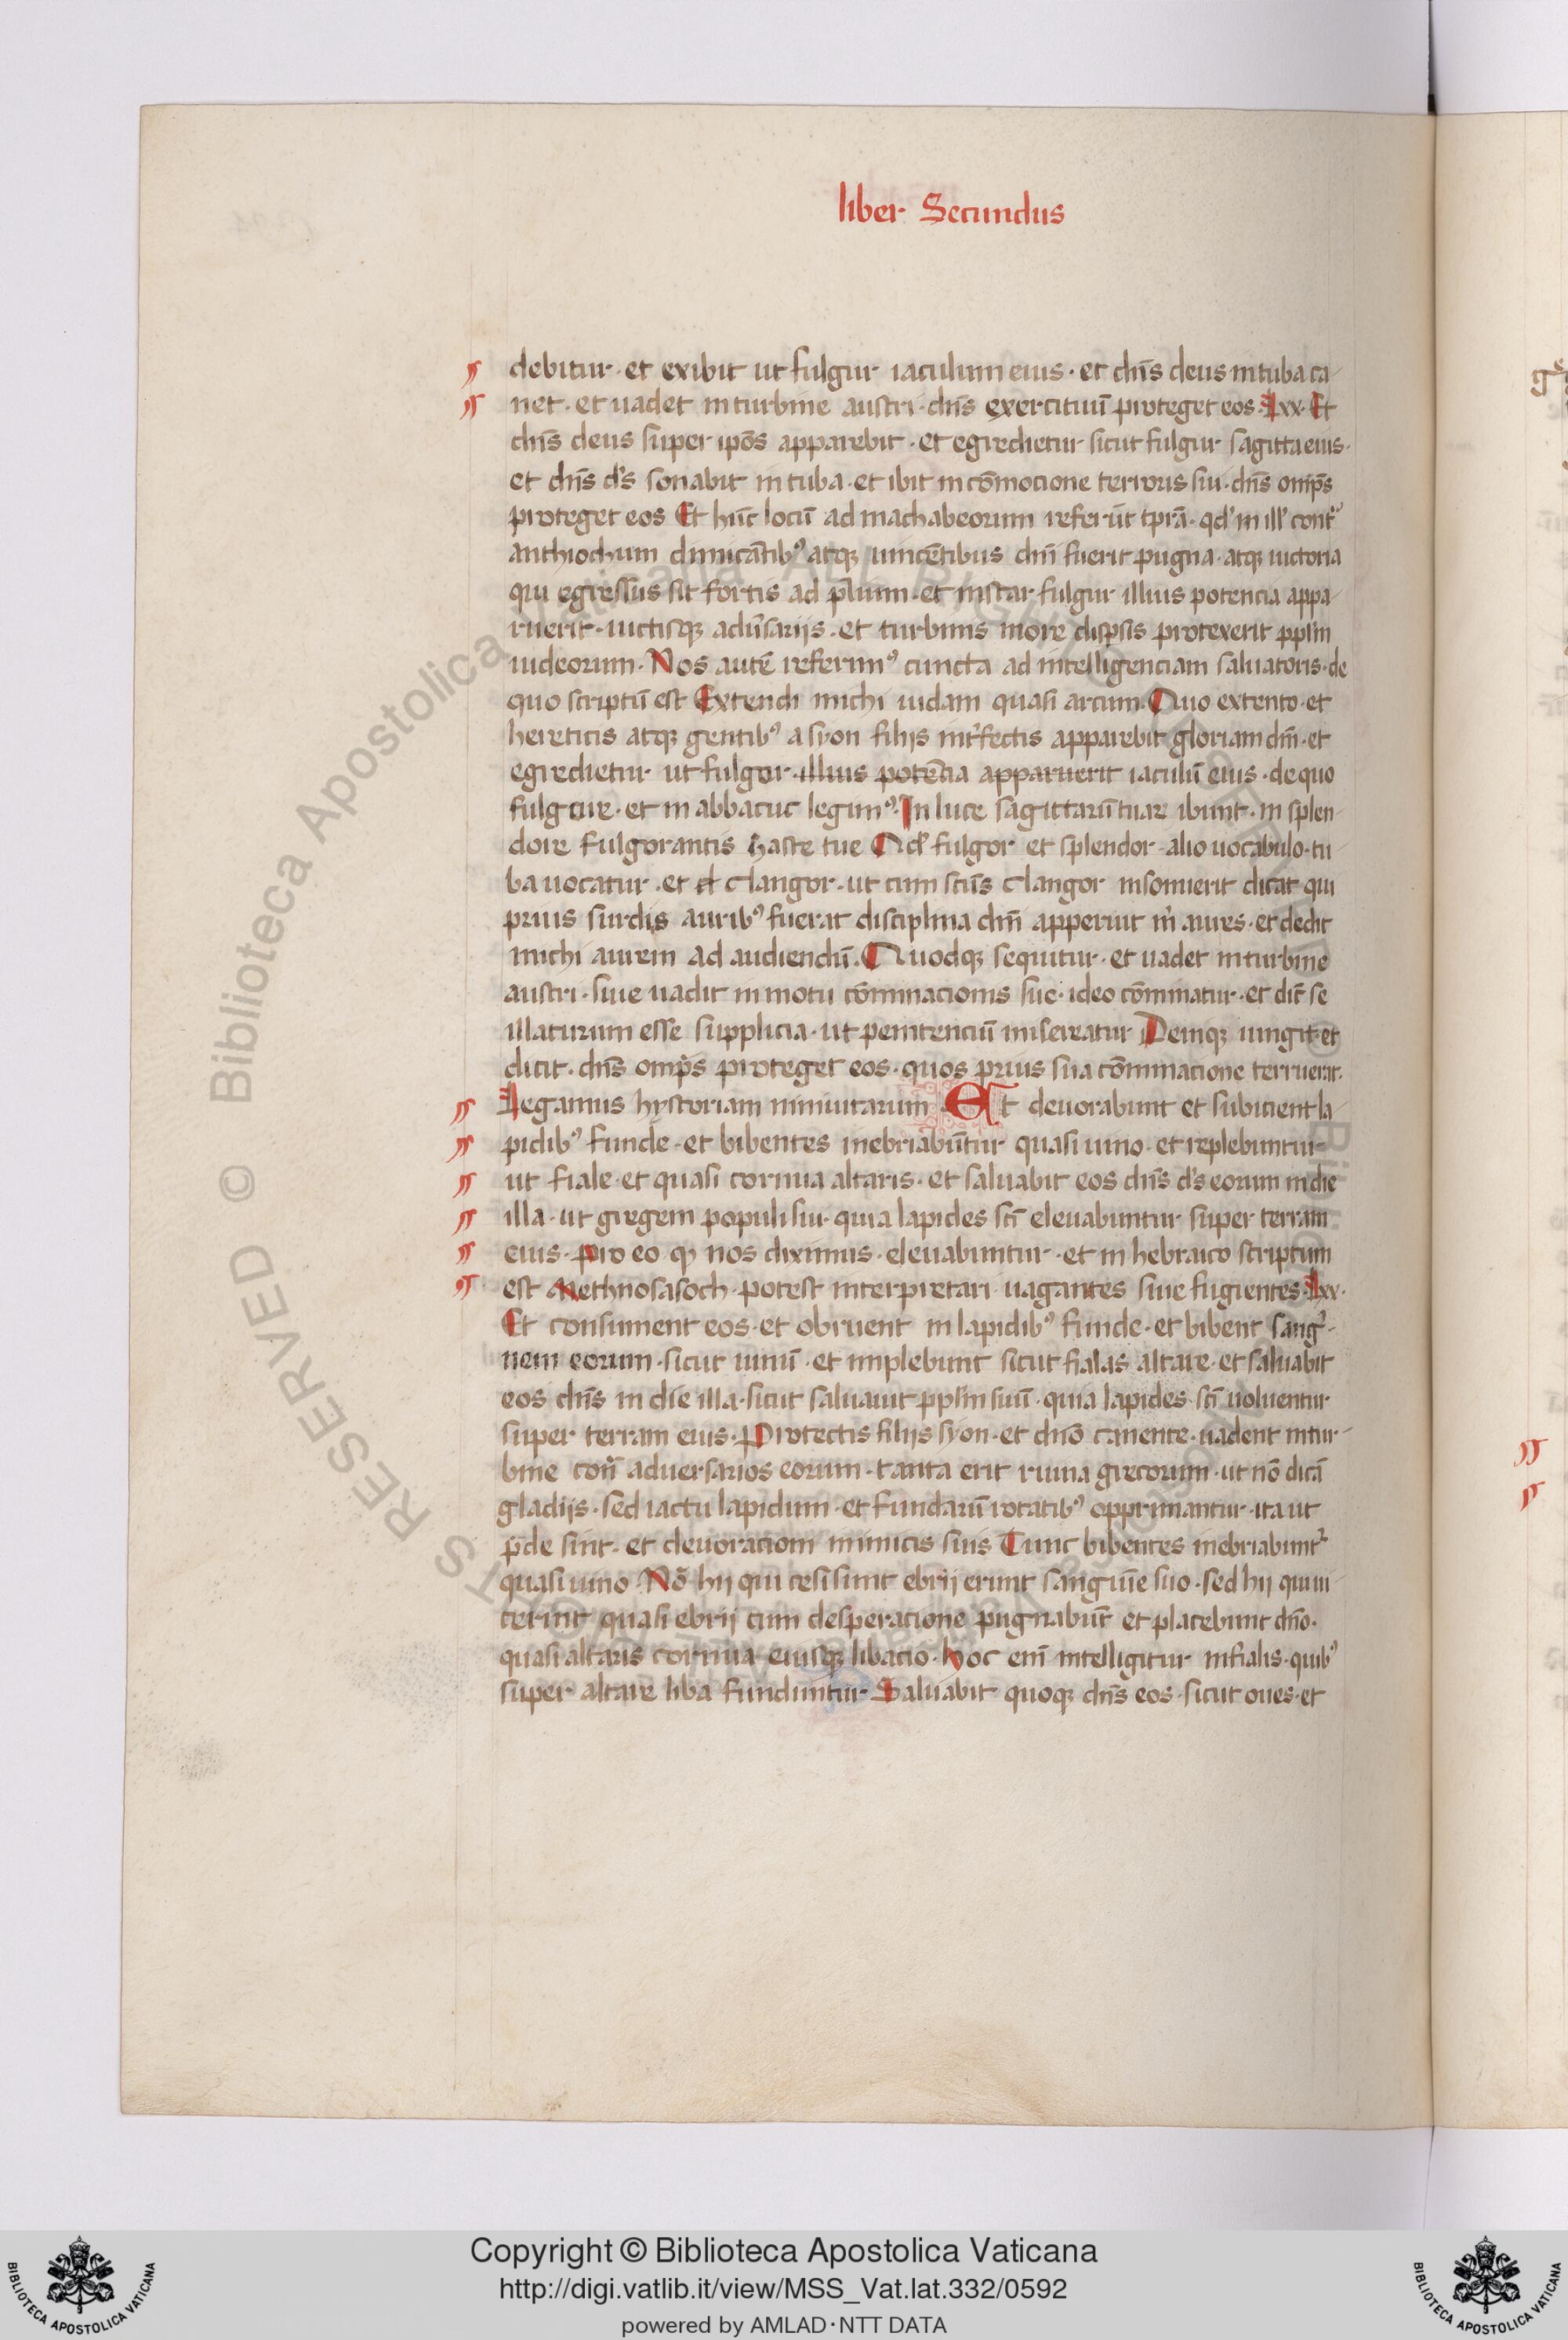 liber Secundus
debitur · et exibit ut fulgur iaculum eius · et dn̄s deus in tuba ca-
net · et uadet in turbine austri · dn̄s exercituū proteget eos · Lxx · Et
dn̄s deus super ip̄os apparebit · et egredietur sicut fulgur sagitta eius ·
et dn̄s d's sonabit in tuba · et ibit in cōmocione terroris sui · dn̄s om̄ps
proteget eos Et hūc locū ad machabeorum referūt tp̄ra · qd' in ill' cont͛
anthiochum dimicātib⁹ atqꝫ uincētibus dn̄i fuerit pugna · atqꝫ uictoria
qui egressus sit fortis ad p̄lium · et instar fulgur illius potencia appa-
ruerit · uictisqꝫ adūsarijs · et turbinis more disp̄sis protexerit pplm̄
iudeorum · Nos autē referim⁹ cuncta ad intelligenciam saluatoris · de
quo scriptū est Extendi michi iudam quasi arcum · Quo extento · et
hereticis atqꝫ gentib⁹ a syon filijs int͛fectis apparebit gloriam dn̄i · et
egredietur ut fulgor · illius potēcia apparuerit iaculū eius · de quo
fulgure · et in abbacuc legim⁹ · In luce sagittarū tuar ibunt · in splen-
dore fulgorantis haste tue Qd' fulgor et splendor · alio uocabulo · tu-
ba uocatur · et d clangor · ut cum scūs clangor insonuerit dicat qui
prius surdis aurib⁹ fuerat disciplina dn̄i apperuit m̄ aures · et dedit
michi aurem ad audiendū · Quodqꝫ sequitur · et uadet in turbine
austri · siue uadit in motu cōminacionis sue · ideo cōminatur · et dic̄ se
illaturum esse supplicia · ut penitenciū misereatur Deniqꝫ iungit · et
dicit · dn̄s om̄ps proteget eos · quos prius sua cōminacione terruerat ·
Legamus hystoriam minutarum · Et deuorabunt et subicient la-
pidib⁹ funde · et bibentes inebriabūtur quasi uino · et replebuntur
ut fiale · et quasi cornua altaris · et saluabit eos dn̄s d's eorum in die
illa · ut gregem populi sui · quia lapides scī eleuabuntur super terram
eius · pro eo qꝫ nos diximus · eleuabuntur · et in hebraico scriptum
est Nethnosasoch · potest interpretari uagantes siue fugientes · Lxx ·
Et consument eos · et obruent in lapidib⁹ funde · et bibent sang͛-
nem eorum · sicut uinū · et implebunt sicut fialas altare · et saluabit
eos dn̄s in die illa · sicut saluauit pplm̄ suū · quia lapides scī uoluentur
super terram eius · Protectis filijs syon · et dn̄o canente · uadent in tur-
bine con͛ adversarios eorum · tanta erit ruina grecorum · ut nō dicā
gladijs · sed iactu lapidum · et fundarū rotatib⁹ opprimantur · ita ut
p̄de sint · et deuoraciom inimicis suis Tunc bibentes inebriabunt͛
quasi uino · Nō hij qui cesi sunt ebrij erunt sanguīe suo · sed hij qui ui-
cerint quasi ebrij cum desperacione pugnabūt et placebunt dn̄o ·
quasi altaris cornua eiusqꝫ libacio · hoc enī intelligitur in fialis · quib⁹
super altare liba funduntur · Saluabit quoqꝫ dn̄s eos · sicut oues · et
Copyright © Biblioteca Apostolica Vaticana
http://digi.vatlib.it/view/MSS_Vat.lat.332/0592
powered by AMLAD · NTT DATA